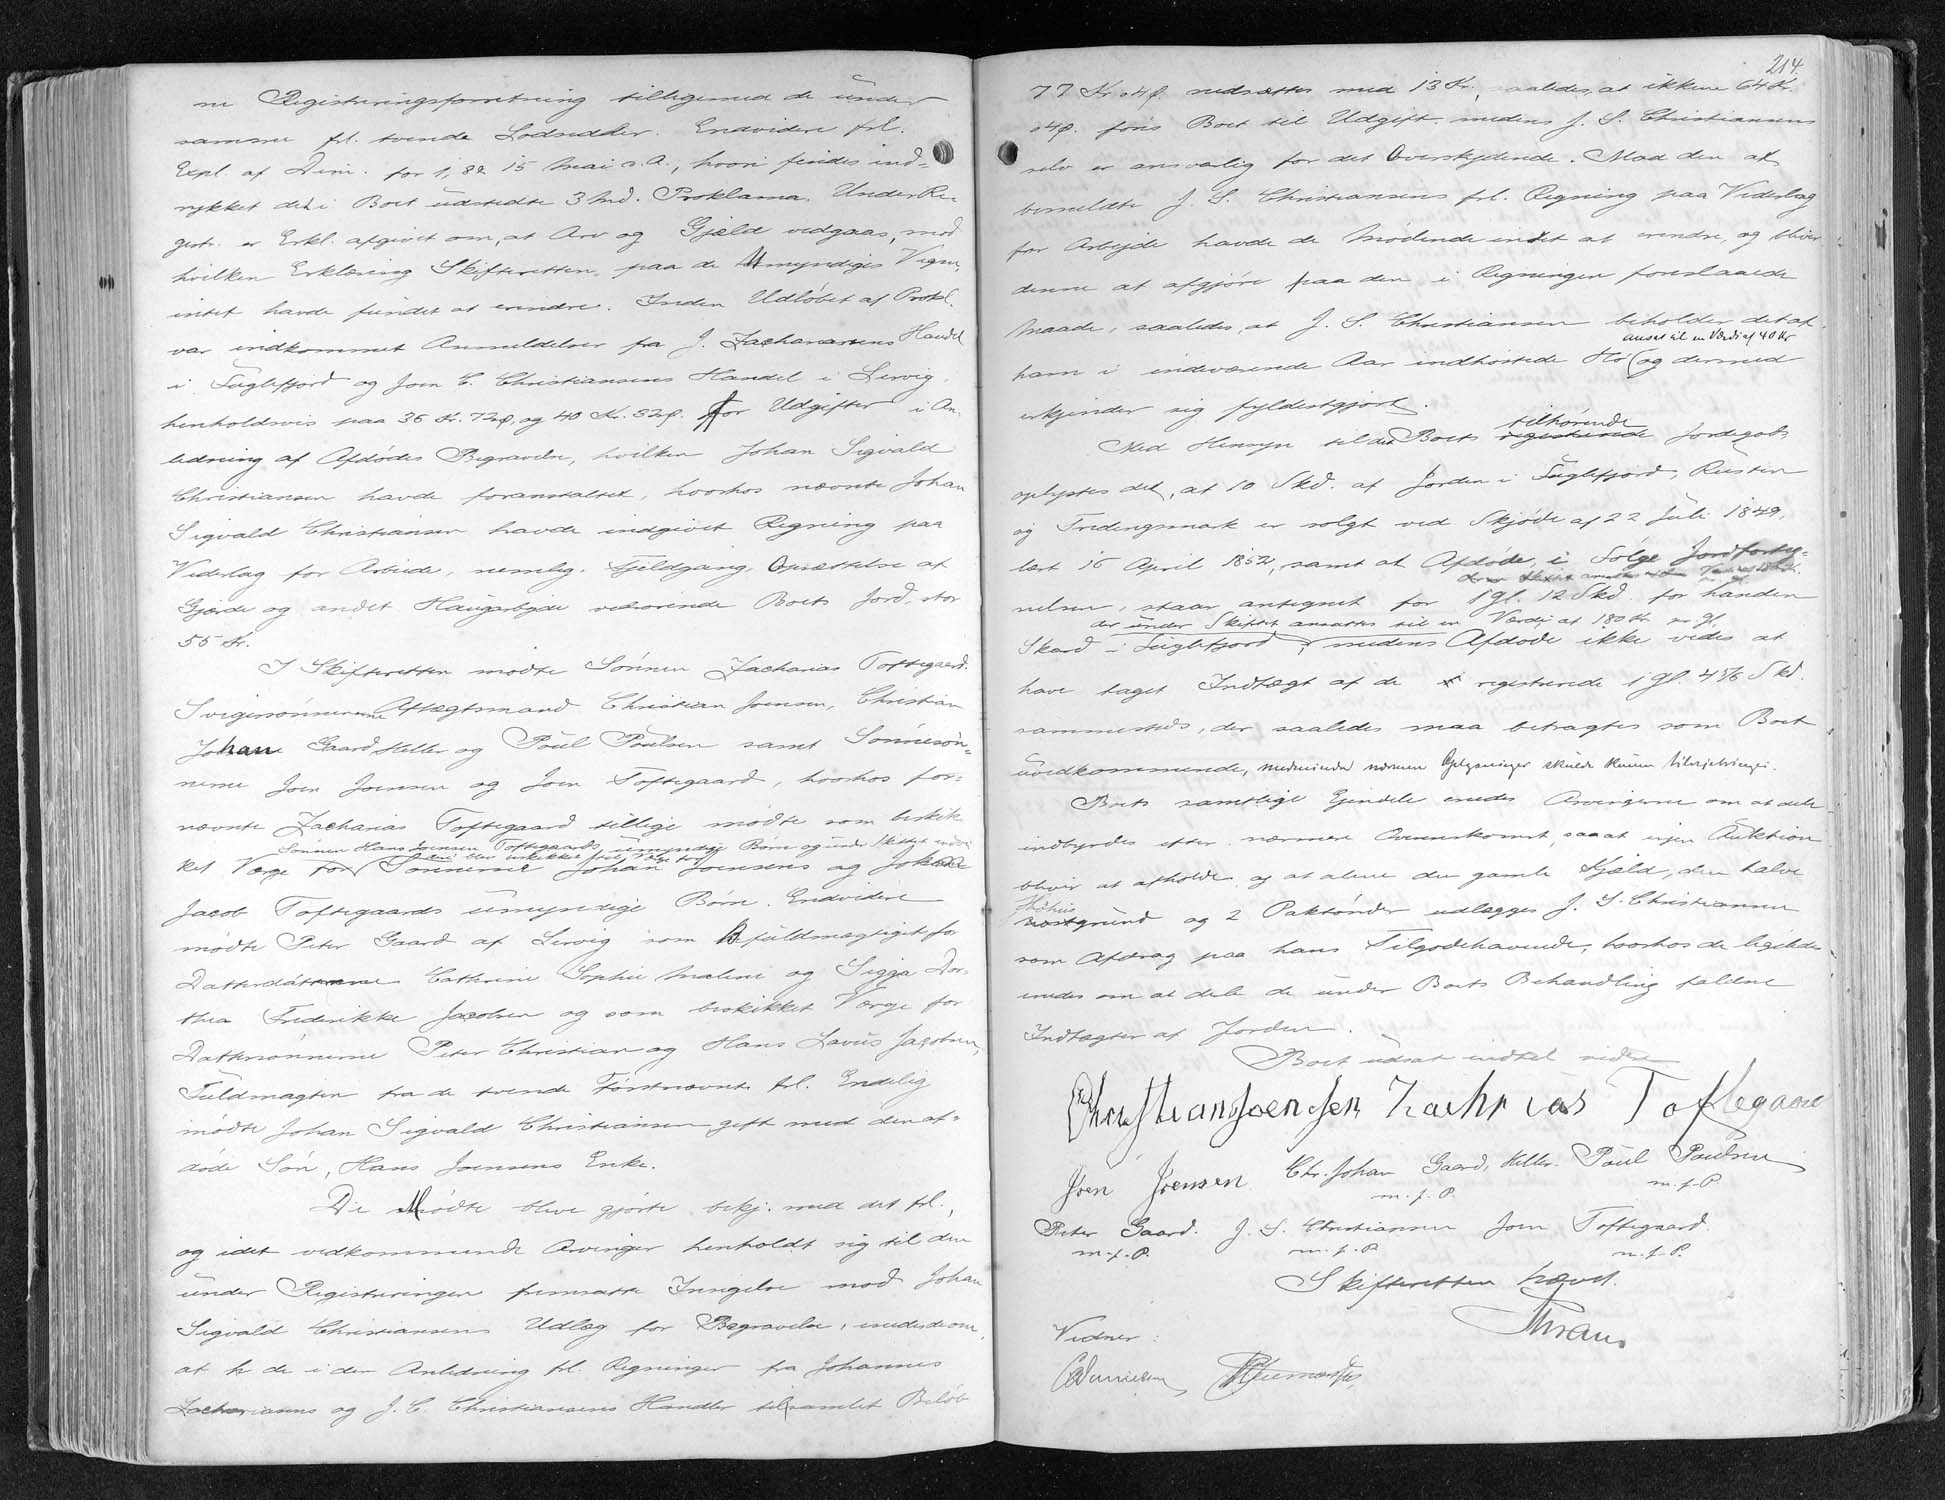 ne Registreringsforretning tilligemed de under
samme frl. tvende Lodsedler. Endvidere frl.
Expl. af Dim. for 1, 8 & 15 Mai d. A., hvori findes ind-
rykket det i Boet udstedte 3 Md. Proklama. Under Re-
gistr. er Erkl. afgivet om, at Arv og Gjæld vedgaas, mod
hvilken Erklæring Skifteretten paa de Umyndiges Vegne
intet havde fundet at erindre. Inden Udløbet af Prokl.
var indkommet Anmeldelser fra J. Zachariasens Handel
i Fuglefjord og Joen C. Christiansens Handel i Lervig
henholdsvis paa 36 Kr. 72 Ø. og 40 Kr. 32 Ø. for Udgifter i An-
ledning af Afdødes Begravelse, hvilken Johan Sigvald
Christiansen havde foranstaltet, hvorhos nævnte Johan
Sigvald Christiansen havde indgivet Regning paa
Vederlag for Arbeide, nemlig Fjeldgang, Opsættelse af
Gjærde og andet Haugarbejde vedrørende Boets Jord, stor
55 Kr.
I Skifteretten mødte Sønnen Zacharias Toftegaard.
Svigersønnerne Aftægtsmand Christian Joensen, Christian
Johan Gaard Heller og Poul Poulsen samt Sønnesøn-
nerne Joen Joensen og Joen Toftegaard, hvorhos for-
nævnte Zacharias Toftegaard tillige mødte som beskik-
Sønnen Hans Joensen Toftegaards umyndige Børn og under Skiftet
ket Værge for Sønnerne Johan Joensens og
Jacob Toftegaards umyndige Børn. Endvidere
mødte Peter Gaard af Lervig som Befuldmægtiget for
Datterdøttrene Cathrine Sophie Maline og Sigga Dor-
thea Frederikke Jacobsen og som beskikket Værge for
Dattersønnerne Peter Christian og Hans Lavus Jacobsen,
Fuldmagten fra de tvende Førstnævnte frl. Endelig
mødte Johan Sigvald Christiansen gift med den af-
døde Søn, Hans Joensens Enke.
De Mødte blive gjorte bekj. med det frl.,
og idet vedkommende Arvinger henholdt sig til den
under Registreringen fremsatte Indsigelse mod Johan
Sigvald Christiansens Udlæg for Begravelse, enedes de om,
at de i den Anledning frl. Regninger fra Johannes
Zachariasens og J. C. Christiansens Handler til samlet Beløb
214.
77 Kr. 04 Ø. nedsættes med 13 Kr., saaledes, at ikkuns 64 Kr.
04 Ø. føris Boet til Udgift, medens J. S. Christiansen
selv er ansvarlig for det Overskydende. Mod den af
bemeldte J. S. Christiansen frl. Regning paa Vederlag
for Arbejde havde de Mødende intet at erindre, og bliver
denne at afgjøre paa den i Regningen foreslaaede
Maade, saaledes, at J. S. Christiansen beholder det af
ansat til en Værdi af 40 Kr
ham i indeværende Aar indhøstede Hø og dermed
erkjender sig fyldestgjort.
tilhørende
Med Hensyn til det Boets registrerede Jordegods
oplystes det, at 10 Skd. af Jorden i Fuglefjord, Rusten
og Tredingsmark er solgt ved Skjøde af 22 Juli 1849,
læst 16 April 1852, samt at Afdøde, i Følge Jordforteg-
nelsen, staar antegnet for 1 Gl. 12 Skd. for handen
der under Skiftet ansættes til en Værdi af 180 Kr. pr. Gl.
Skard i Fuglefjord, medens Afdøde ikke vides at
have taget Indtægt af de registrerede 1 Gl. 4 5/6 Skd.
sammesteds, der saaledes maa betragtes som Boet
uvedkommende, medmindre nærmere Oplysninger skulde kunne tilvejebringes.
Boets samtlige Ejendele enedes Arvingerne om at dele
indbyrdes efter nærmere Overenskomst, saa at ingen Auktion
bliver at afholde og at alene den gamle Hjeld, den halve
grund og 2 Paktønder udlægges J. S. Christiansen
som Afdrag paa hans Tilgodehavende, hvorhos de ligeledes
enedes om at dele de under Boets Behandling faldne
Indtægter af Jorden.
Boet udsat indtil videre
Christian Joensen Zachrias Toftegaard
Joen Joensen Chr. Johan Gaard, Heller. Poul Poulsen
m. f. P. m. f. P.
Peter Gaard. J. S. Christiansen Joen Toftegaard.
m. f. P. m. f. P. m. f. P.
Skifteretten hævet.
Vidner: